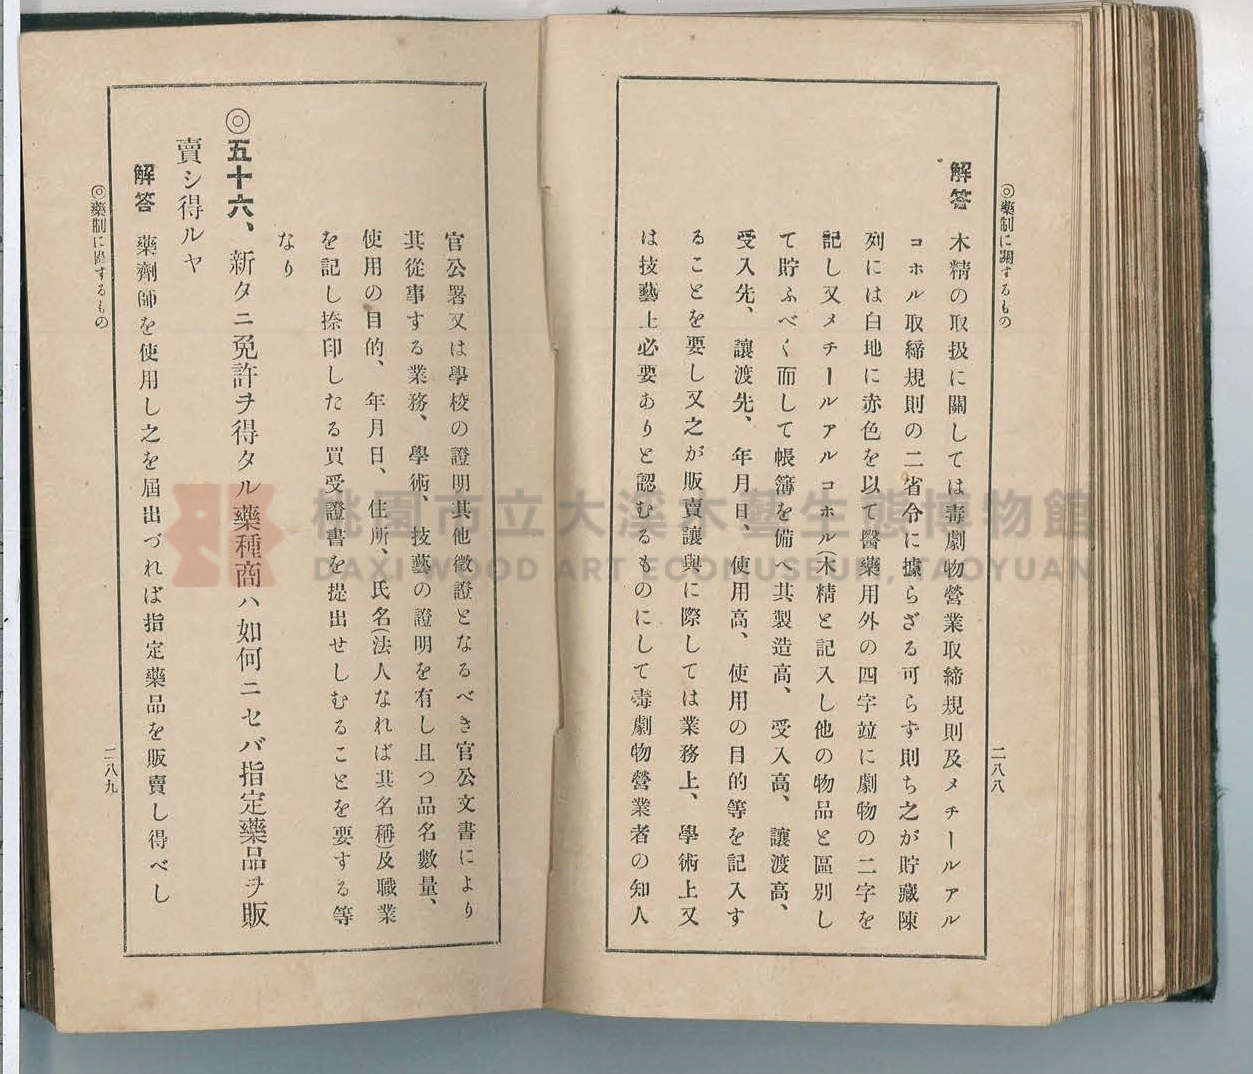 ◎藥制に關するもの
二八八
解答 木精の取扱に關しては毒劇物營業取締規則及メチールアル
コホル取締規則の二省令に據らざる可らず則ち之が貯藏陳
列には白地に赤色を以て醫藥用外の四字竝に劇物の二字を
記し又メチールアルコホル(木精と記入し他の物品と區別し
て貯ふべく而して帳簿を備へ其製造高、受入高、讓渡高、
受入先、讓渡先、年月日、使用高、使用の目的等を記入す
ることを要し又之が販賣讓與に際しては業務上、學術上又
は技藝上必要ありと認むるものにして毒劇物營業者の知人
官公署又は學校の證明其他徵證となるべき官公文書により
其從事する業務、學術、技藝の證明を有し且つ品名數量、
使用の目的、年月日、住所、氏名(法人なれば其名稱)及職業
を記し捺印したる買受證書を提出せしむることを要する等
なり
◎五十六、新タニ免許ヲ得タル藥種商ハ如何ニセバ指定藥品ヲ販
賣シ得ルヤ
解答 藥劑師を使用し之を屆出づれば指定藥品を販賣し得べし
◎藥制に關するもの
二八九
桃園市立大溪木藝生態博物館
DAXI WOOD ART ECOMUSEUM, TAOYUAN